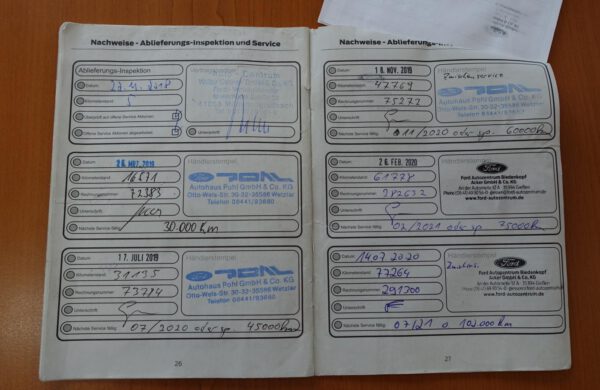 Nachweise - Ablieferungs-Inspektion und Service
Ablieferungs-Inspektion
Datum: 27.11.2018
Kilometerstand 5
Überprüft auf offene Service Aktionen
Offene Service Aktionen abgearbeitet
Unterschrift
26. MRZ. 2019
Datum:
Kilometerstand 16571
Rechnungsnummer 72383
Unterschrift
Nächste Service fällig: 30.000 Km
Händlerstempel
Autohaus Pohl GmbH & Co. KG
Otto-Wels-Str. 30-32·35586 Wetzlar
Telefon 06441/93680
Datum: 17. JULI 2019
Kilometerstand 31135
Rechnungsnummer 73794
Unterschrift
Nächste Service fällig: 07/2020 oder sp. 45000km
Händlerstempel
Autohaus Pohl GmbH & Co. KG
Otto-Wels-Str. 30-32·35586 Wetzlar
Telefon 06441/93680
26
Nachweise - Ablieferungs-
Datum: 18. NOV. 2019
Kilometerstand 47769
Rechnungsnummer 75272
Unterschrift
Nächste Service fällig: 11/2020 oder sp. 60000km
Händlerstempel
Zwischenservice
Autohaus Pohl GmbH & Co. KG
Otto-Wels-Str. 30-32·35586 Wetzlar
Telefon 06441/93680
Datum: 26. FEB. 2020
Kilometerstand 61778
Rechnungsnummer 282632
Unterschrift
Nächste Service fällig: 02/2021 oder sp. 75000km
Händlerstempel
Ford
Ford Autozentrum Biedenkopf
Acker GmbH & Co. KG
www.ford-autozentrum.de
Datum: 14.07.2020
Kilometerstand 77264
Rechnungsnummer 291300
Unterschrift
Nächste Service fällig: 07/21 o 102.000 Km
Händlerstempel
Ford
Ford Autozentrum Biedenkopf
Acker GmbH & Co. KG
www.ford-autozentrum.de
27